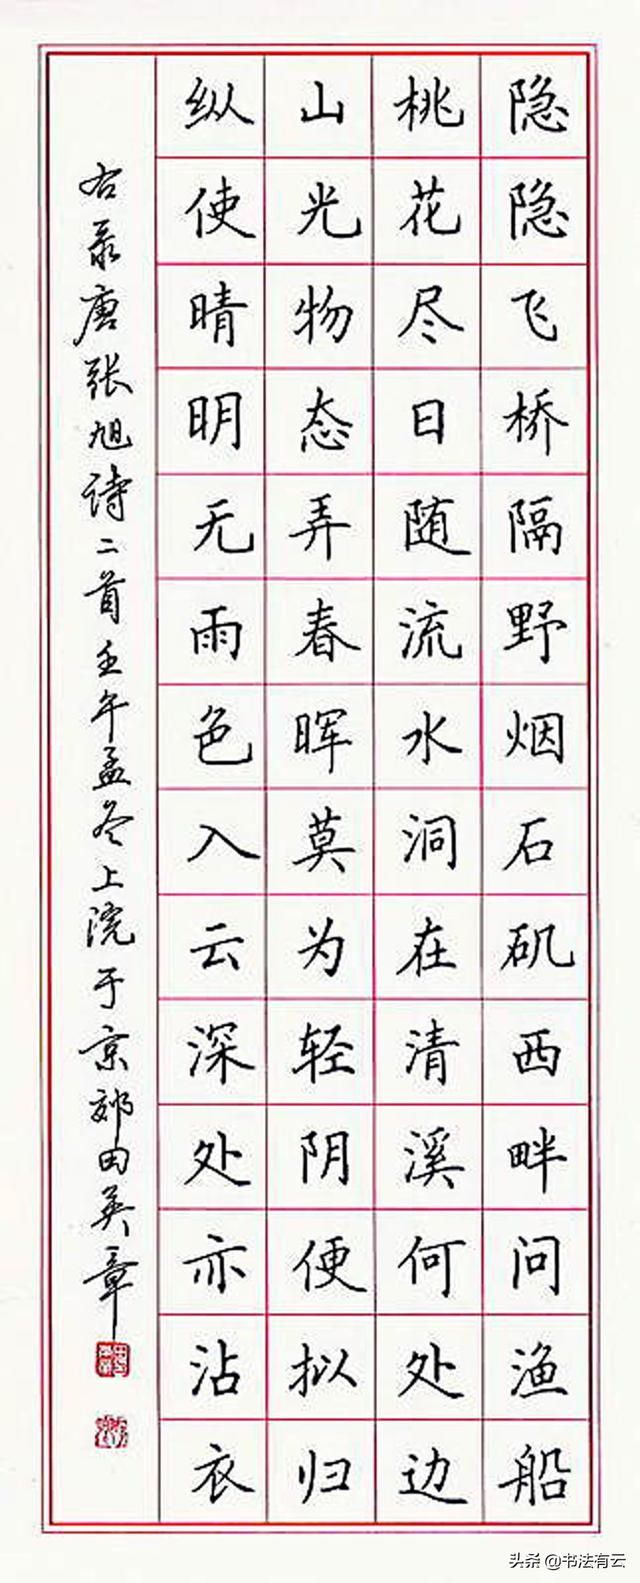 隐隐飞桥隔野烟石矶西畔问渔船
桃花尽日随流水洞在清溪何处边
山光物态弄春晖莫为轻阴便拟归
纵使晴明无雨色入云深处亦沾衣
右录唐张旭诗二首壬午孟冬上浣于京郊田英章
头条 @书法有云